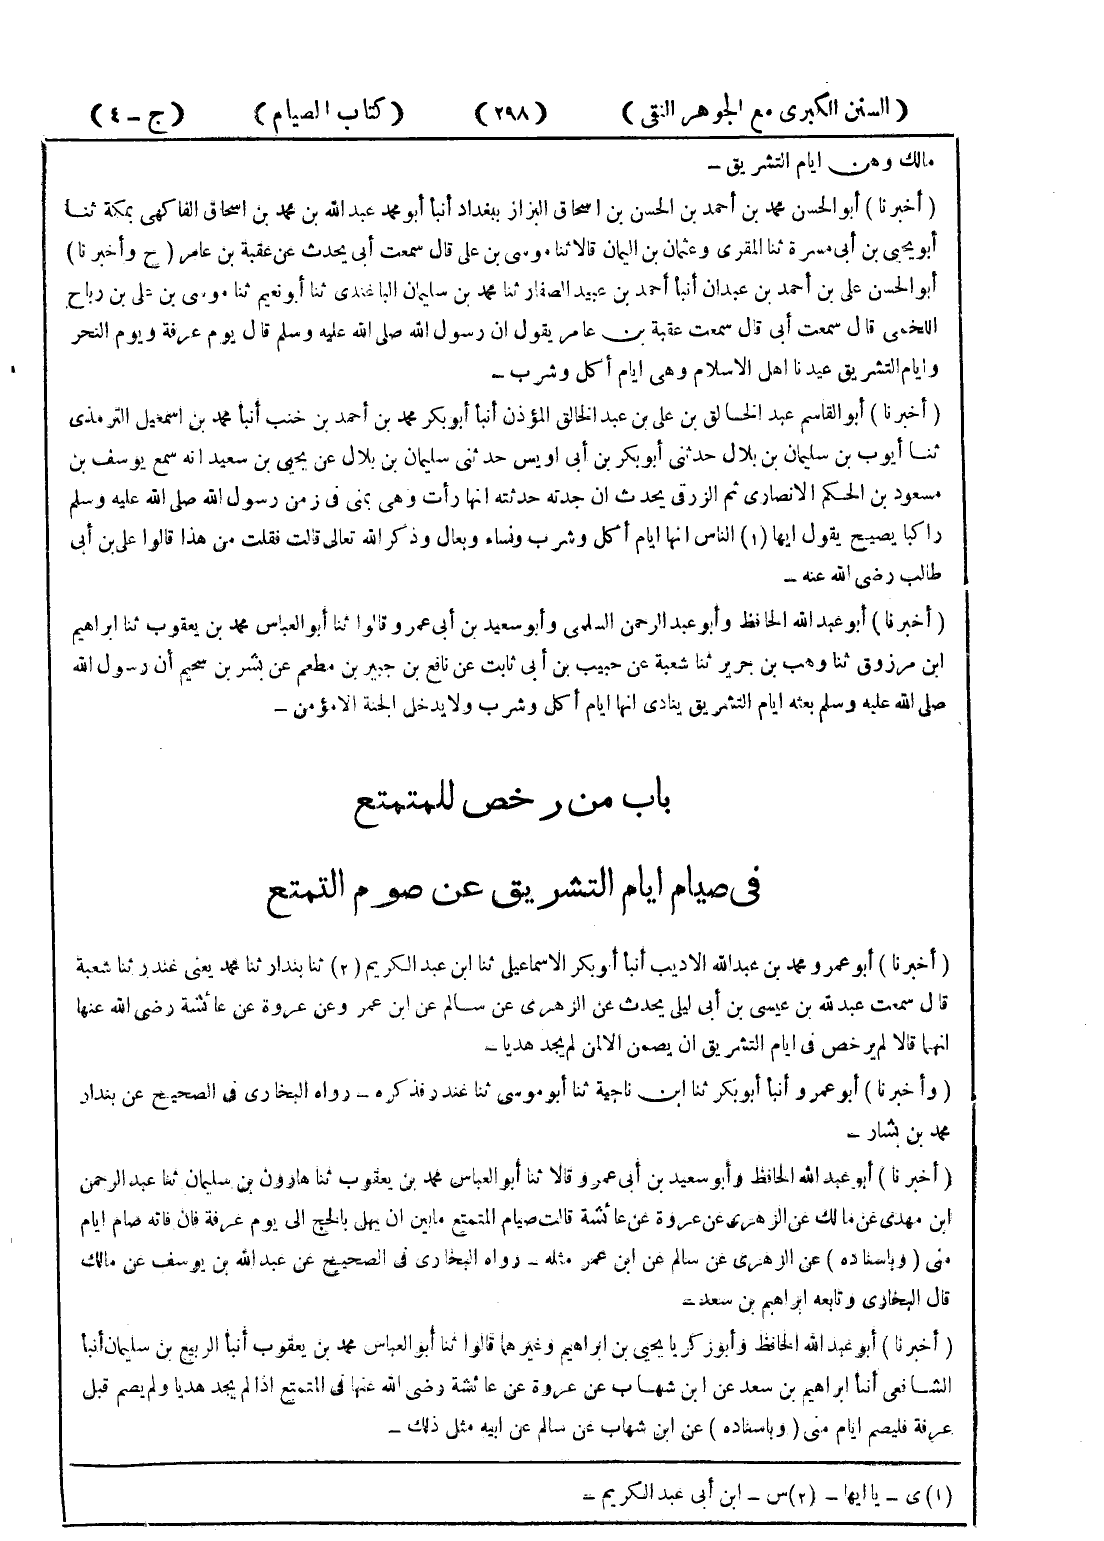 ( السنن الكبرى مع الجوهر النقى ) ( ٢٩٨ ) ( كتاب الصيام ) ( ج – ٤ )
مالك وهن ايام التشريق –
( أخبرنا ) أبوالحسن محمد بن أحمد بن الحسن بن اسحاق البزاز ببغداد أنبأ أبو محمد عبدالله بن محمد بن اسحاق الفاكهى بمكة ثنا
أبويحيى بن أبى مسرة ثنا المقرى وعثمان بن اليمان قالا ثنا موسى بن على قال سمعت أبى يحدث عن عقبة بن عامر ( ح وأخبرنا )
أبوالحسن على بن أحمد بن عبدان أنبأ أحمد بن عبيد الصفار ثنا محمد بن سليمان الباغندى ثنا أبونعيم ثنا موسى بن على بن رباح
اللخمى قال سمعت أبى قال سمعت عقبة بن عامر يقول ان رسول الله صلى الله عليه وسلم قال يوم عرفة ويوم النحر
وايام التشريق عيدنا اهل الاسلام وهى ايام أكل وشرب –
( أخبرنا ) أبوالقاسم عبد الخالق بن على بن عبد الخالق المؤذن أنبأ أبوبكر محمد بن أحمد بن خنب أنبأ محمد بن اسمعيل الترمذى
ثنا أيوب بن سليمان بن بلال حدثنى أبوبكر بن أبى اويس حدثنى سليمان بن بلال عن يحيى بن سعيد انه سمع يوسف بن
مسعود بن الحكم الانصارى ثم الزرقى يحدث ان جدته حدثته انها رأت وهى بمنى فى زمن رسول الله صلى الله عليه وسلم
راكبا يصيح يقول ايها (١) الناس انها ايام أكل وشرب ونساء وبعال وذكر الله تعالى قالت فقلت من هذا قالوا على بن أبى
طالب رضى الله عنه –
( أخبرنا ) أبوعبد الله الحافظ وأبوعبد الرحمن السلمى وأبوسعيد بن أبى عمرو قالوا ثنا أبوالعباس محمد بن يعقوب ثنا ابراهيم
ابن مرزوق ثنا وهب بن جرير ثنا شعبة عن حبيب بن أبى ثابت عن نافع بن جبير بن مطعم عن بشر بن سحيم أن رسول الله
صلى الله عليه وسلم بعثه ايام التشريق ينادى انها ايام أكل وشرب ولا يدخل الجنة الا مؤمن –
باب من رخص للمتمتع
فى صيام ايام التشريق عن صوم التمتع
( أخبرنا ) أبوعمرو محمد بن عبدالله الاديب أنبأ أبوبكر الاسماعيلى ثنا ابن عبد الكريم (٢) ثنا بندار ثنا محمد يعنى غندر ثنا شعبة
قال سمعت عبدلله بن عيسى بن أبى ليلى يحدث عن الزهرى عن سالم عن ابن عمر وعن عروة عن عائشة رضى الله عنها
انهما قالا لم يرخص فى ايام التشريق ان يصمن الا لمن لم يجد هديا –
( وأخبرنا ) أبوعمرو أنبأ أبوبكر ثنا ابن ناجية ثنا أبوموسى ثنا غندر فذكره – رواه البخارى فى الصحيح عن بندار
محمد بن بشار –
( أخبرنا ) أبوعبد الله الحافظ وأبوسعيد بن أبى عمرو قالا ثنا أبوالعباس محمد بن يعقوب ثنا هارون بن سليمان ثنا عبدالرحمن
ابن مهدى عن مالك عن الزهرى عن عروة عن عائشة قالت صيام المتمتع مابين ان يهل بالحج الى يوم عرفة فان فاته صام ايام
منى ( وباسناده ) عن الزهرى عن سالم عن ابن عمر مثله – رواه البخارى فى الصحيح عن عبدالله بن يوسف عن مالك
قال البخارى وتابعه ابراهيم بن سعد –
( أخبرنا ) أبوعبد الله الحافظ وأبوزكريا يحيى بن ابراهيم وغيرهما قالوا ثنا أبوالعباس محمد بن يعقوب أنبأ الربيع بن سليمان أنبأ
الشافعى أنبأ ابراهيم بن سعد عن ابن شهاب عن عروة عن عائشة رضى الله عنها فى المتمتع اذا لم يجد هديا ولم يصم قبل
عرفة فليصم ايام منى ( وباسناده ) عن ابن شهاب عن سالم عن ابيه مثل ذلك –
(١) ى – يا ايها – (٢) س – ابن أبى عبد الكريم –